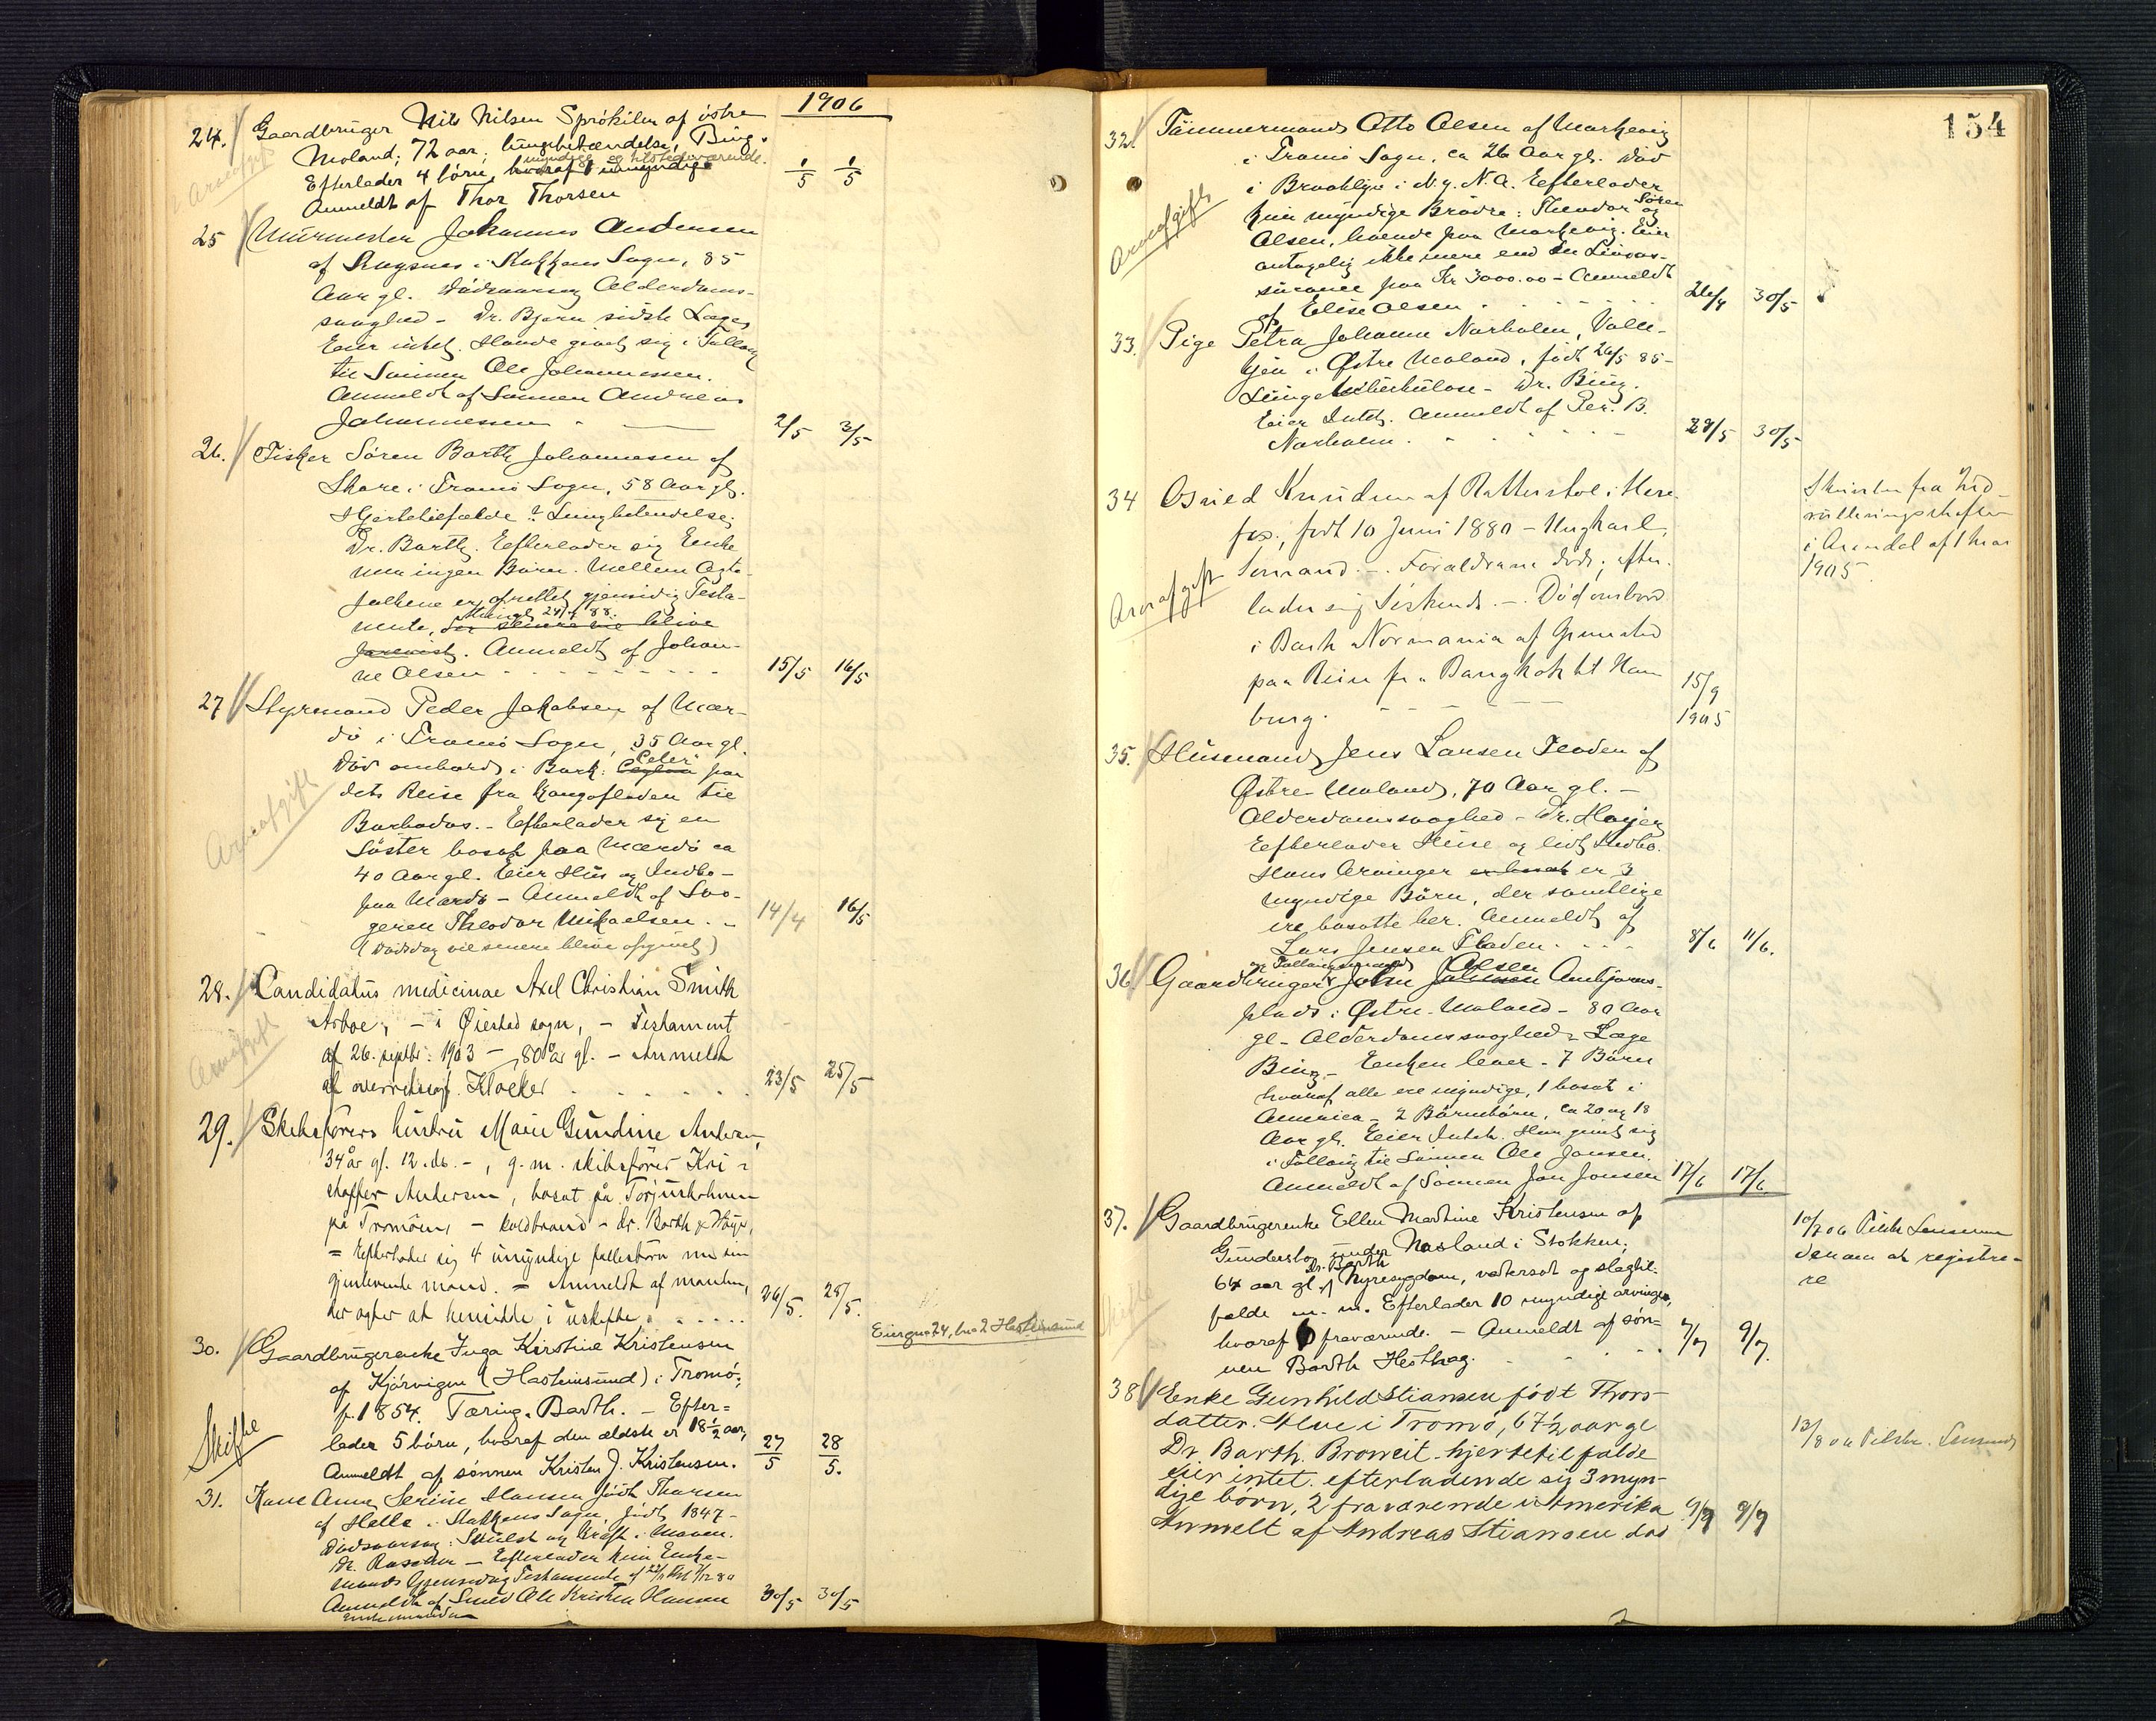 1906
24. Gaardbruger Nils Nilsen Sprökilen af östre
Moland; 72 aar; lungebetændelse, Bing.
myndige og tilstedeværende.
Efterlader 4 börn, hvoraf 1 umyndige
Anmeldt af Thor Thorsen
1/5 1/5
Arveafgift
25 Murmester Johannes Andersen
af Sagnes i Stokkens Sogn, 85
Aar gl. Dödsaarsag Alderdoms-
svaghed - Dr. Bjorn sidste Læge,
Eier intet. Havde givet sig i Follog
til Sönnen Ole Johannessen.
Anmeldt af Sønnen Andreas
Johannessen 2/5 3/5
26. Fisker Sören Barth Johannesen af
Skare i Tromö Sogn, 58 Aar gl.
Hjertetilfælde? Lungbetendelse;
Dr. Barth. Efterlader sig Enke
men ingen Børn. Mellem Ægte-
folkene er oprettet gjensidig Testa-
24/4 88.
mente, der senere vil blive
forevist. Anmeldt af Johan-
ne Olsen 15/5 16/5
27 Styrmand Peder Jakobsen af Mær-
dö i Tromö Sogn, 35 Aar gl.
Peter
Död ombord i Bark: Ceylon paa
dets Reise fra Kongofloden til
Barbados. - Efterlader sig en
Söster bosat paa Mærdö ca
40 Aar gl. Eier Hus og Indbo-
paa Mærdö - Anmeldt af Svo-
geren Theodor Mikaelsen. - 14/4 16/5
(Dödsdag vil senere blive opgivet)
Arveafgift
28. Candidatus medicinae Axel Christian Smith
Arboe, - i Øiestad sogn, - Testament
af 26. septbr: 1903 - , 80 år gl. - Anmeldt
af overretssagf. Klocker 23/5 25/5
Arveafgift
29. Skibsførers hustru Marie Gundine Andersen,
34 år gl. 12. ds. - , g. m. skibsfører Kri-
stoffer Andersen, bosat på Torjusholmen
på Tromöen, - koldbrand - dr. Barth & Høyer,
= Efterlader sig 4 umyndige fællesbörn med sin
gjenlevende mand. = Anmeldt af manden,
der agter at hensidde i uskifte. 26/5. 28/5.
30. Gaardbrugerenke Inga Kirstine Kristensen
af Kjörvigen (Hasteinsund) i Tromö;
f. 1854. Tæring. Barth. - Efter=
lader 5 börn, hvoraf den ældste er 18 1/2 aar,
Anmeldt af sønnen Kristen J. Kristensen. 27/5 28/5.
Skifte
Eier gno 24, bno 2 Hasteinsund
31. Kone Anne Serine Hansen födt Thorsen
af Helle i Stokkens Sogn, födt 1847-
Dödsaarsag: Svulst og Kræft i Maven.
Dr. - Efterlader kun Enke-
mand. Gjensidig Testamente af
Anmeldt af Smed Ole Kristen Hansen 30/5 30/5
Enkemanden
154
32. Tömmermand Otto Olsen af Markevig
i Tromö Sogn, ca 26 Aar gl. död
i Brooklyn i N.y. N.A. Efterlader
Sören
kun myndige Brödre: Theodor og
Olsen, boende paa Markevig. Eier
antagelig ikke mere end en Livsas-
surance paa Kr 3000.00 - Anmeldt
af Elise Olsen 26/4 30/5
Arveafgift
33. Pige Petra Johanne Narholm, Valle-
kjen i Østre Moland, födt 26/5 85-
Lungetuberkulose - Dr. Bing.
Eier Intet. Anmeldt af Per. B.
Narholm. 28/5 30/5
34 Osuld Knudsen af Rettestøl i Here-
fos, født 10 Juni 1880 - Ungkarl,
Sømand. - Forældrene døde; efter-
lader sig Søskende. - Død ombord
i Bark Normania af Grimstad
paa Reise fra Bangkok til Ham
burg. 15/9 1905
Arveafgift
Skrivelse fra Ind-
rulleringschefen
i Arendal af 1 mar
1905
35. Husmand Jens Larsen Floden af
Østre Moland, 70 Aar gl. -
Alderdomssvaghed - Dr. Høyer
Efterlader Huse og lidt Indbo.
Hans Arvinger er bosat er 3
myndige Börn, der samtlige
ere bosatte her. Anmeldt af
Lars Jensen Floden. 8/6 11/6.
og Follogsmand Olsen
36 Gaardbruger John Johnsen Ambjörns-
plads i Østre Moland - 80 Aar
gl - Alderdomssvaghed - Læge
Bing - Enken lever - 7 Börn
hvoraf alle ere myndige, 1 bosat i
America - 2 Börnebörn, ca 20 og 18
Aar gl. Eier Intet. Har givet sig
i Follog til Sönnen Ole Jonsen.
Anmeldt af Sönnen Jon Jonsen 17/6 17/6
37. Gaardbrugerenke Ellen Martine Kristensen af
Gunderstog under Næsland i Stokken;
Dr. Barth
64 aar gl. Nyresygdom, vatersot og slagtil-
fælde m. m. Efterlader 10 myndige arvinger,
hvoraf 6 fraværende. - Anmeldt af søn=
nen Barth Hesthag. 7/7 9/7.
Skifte
10/7 06 Pålt Lensmann
denom at registre-
re
38 Enke Gunhild Stiansen född Thors-
datter. Hove i Tromö, 67 1/2 aar gl
Dr. Barth. Bronkit - hjertetilfælde
eier intet. efterladende sig 3 myn-
dige börn, 2 fraværende i Amerika
Anmelt af Andreas Stiansen dod 9/7 9/7
13/8 06 Pålt Lensmand